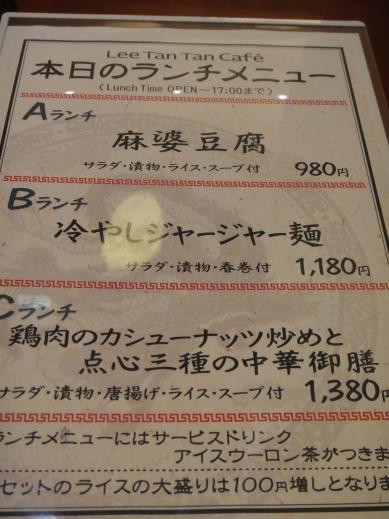 Lee Tan Tan Café
本日のランチメニュー
(Lunch Time OPEN～17:00まで)
Aランチ
麻婆豆腐
サラダ・漬物・ライス・スープ付 980円
Bランチ
冷やしジャージャー麺
サラダ・漬物・春巻付 1,180円
Cランチ
鶏肉のカシューナッツ炒めと
点心三種の中華御膳
サラダ・漬物・唐揚げ・ライス・スープ付 1,380円
ランチメニューにはサービスドリンク
アイスウーロン茶がつきま
セットのライスの大盛りは100円増しとなりま